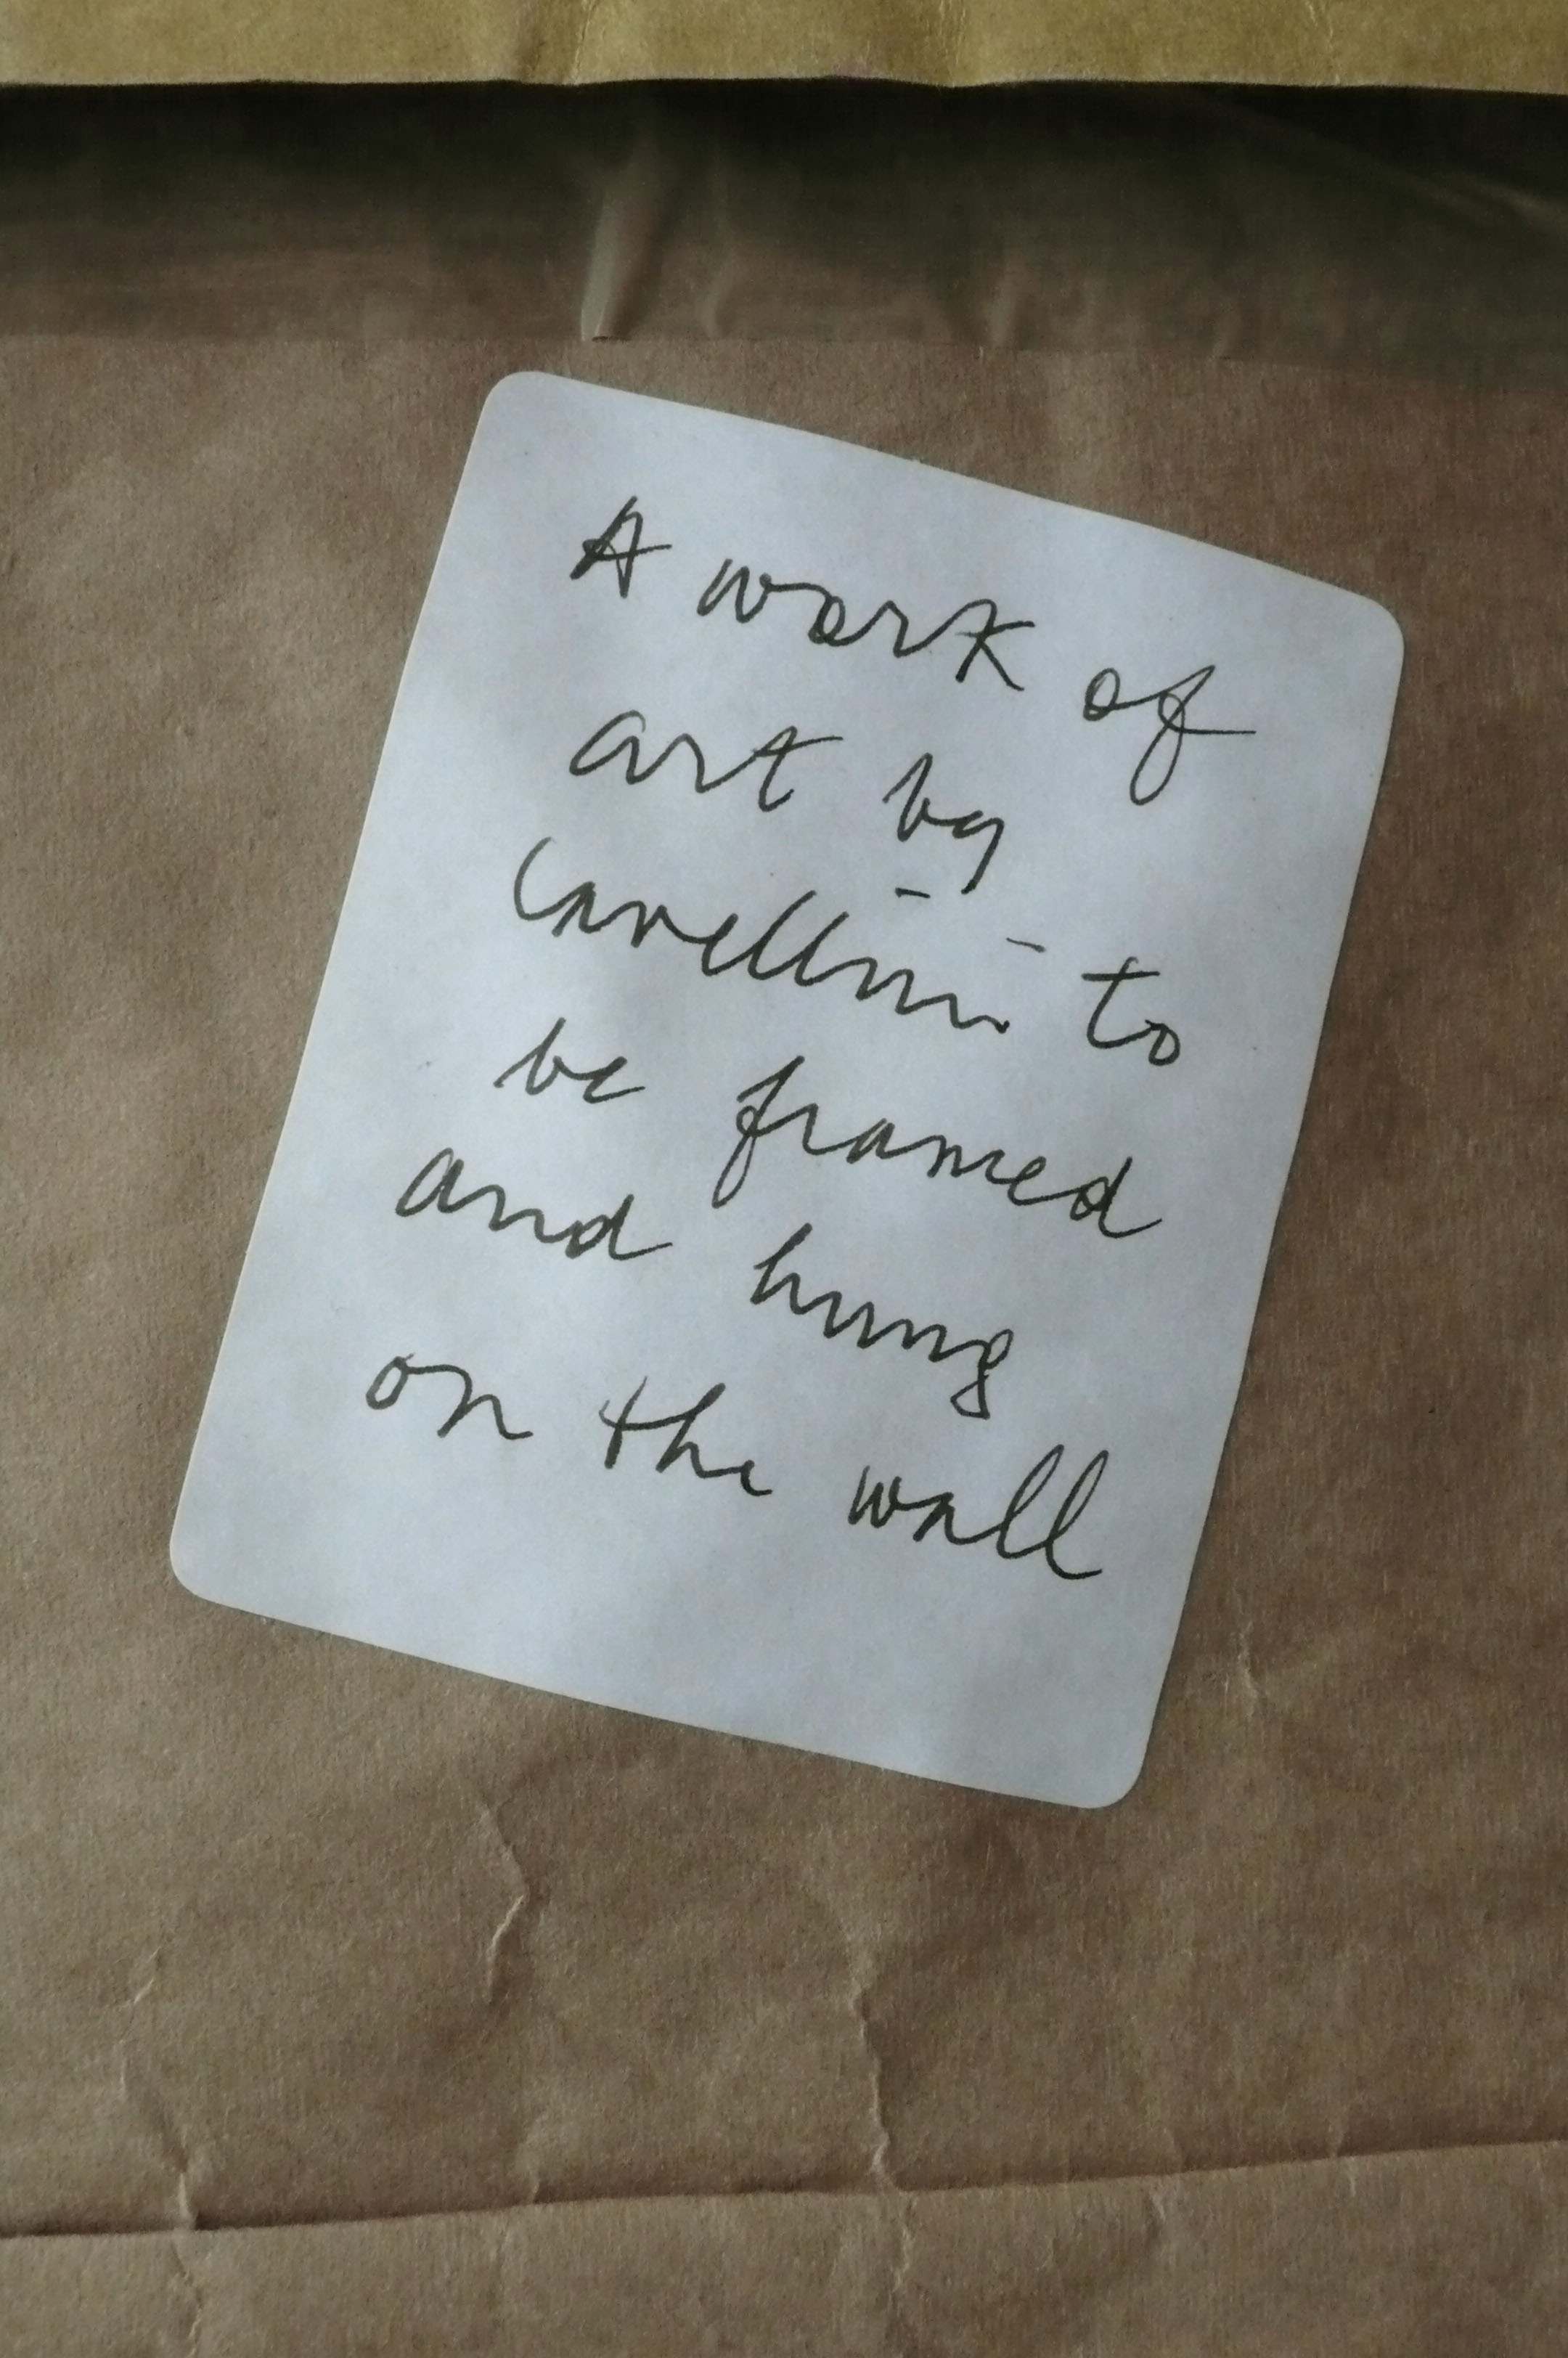 A work of
art by
Cavellini to
be framed
and hung
on the wall